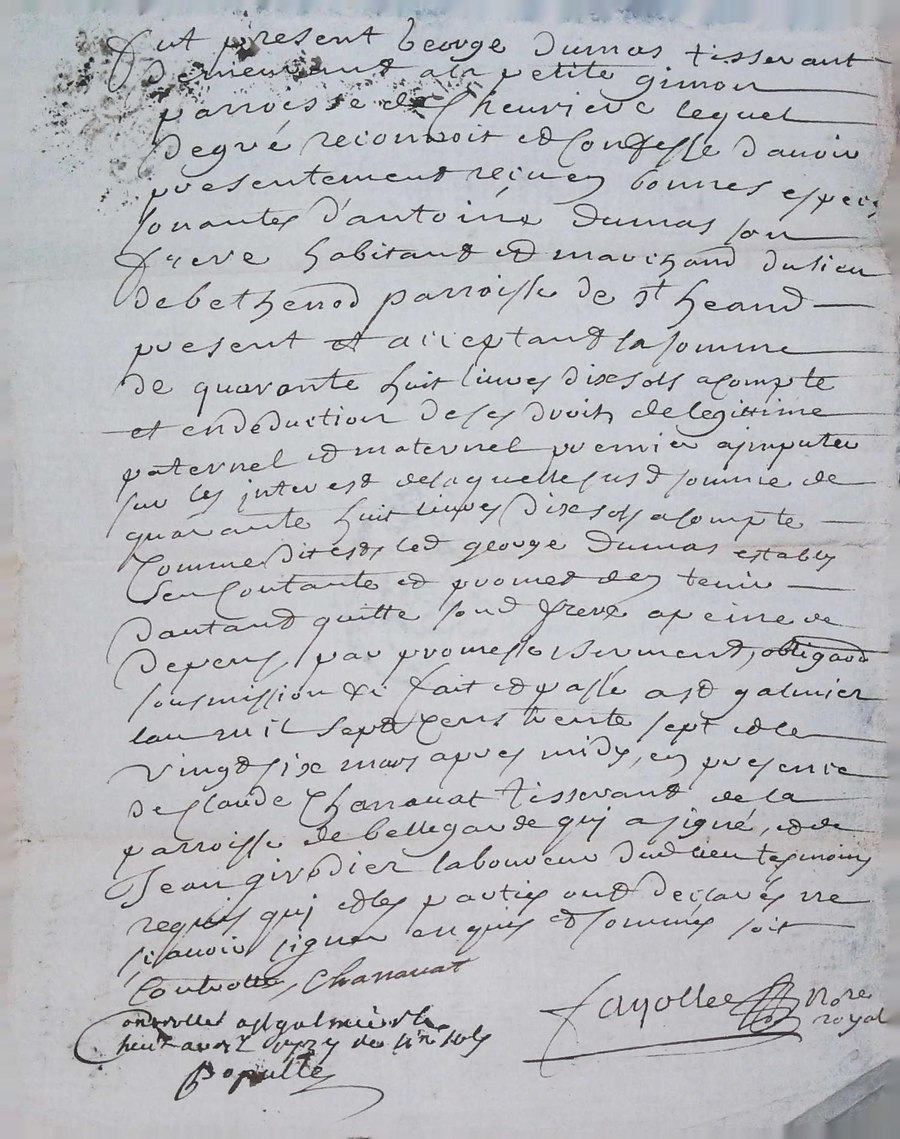 fut present George dumas tisserant
demeurant a la petite gimon
parroisse de Chevriere lequel
degré reconnoit et Confesse d'avoir
presentement reçu en bonnes especes
sonantes d'antoine dumas son
frere habitant et marchand du lieu
de bethenod parroisse de st heand
present et acceptand la somme
de quarante huit livres dixe sols acompte
et en deduction de ses droits de legittime
paternel et maternel premier a jmputer
sur les jnterest de laquelle susd somme de
quarante huit livres dixe sols acompte
Comme dit est led george dumas
sen Contante et promet den tenir
dautand quitte sond frere a peine de
depens par promesse serment, obligaon
sousmission &c fait et passé a st galmier
lan mil sept Cens trente sept et le
vingt sixe mars apres midy, en presence
de Claude Charrouat tisserant de la
parroisse de bellegarde qui a signé, et de
Jean girodier laboureur dud lieu tesmoins
requis qui et les parties ont declarés ne
scavoir signer enquis et sommés soit
Controllé, Charrouat
Controllé a st galmier le
huit avril 1737 de sols
fayolle nore
royal
populle